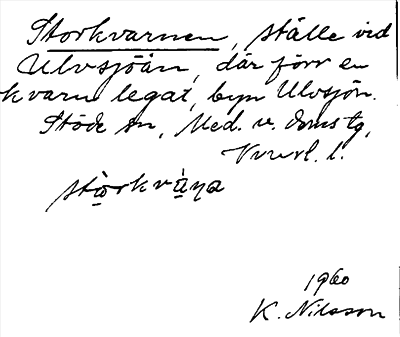 Storkvarnen, ställe vid
Ulvsjöån, där förr en
kvarn legat, byn Ulvsjön.
Stöde sn, Med. v. doms tg,
Vnrl. l.
storkvana
1960
K. Nilsson